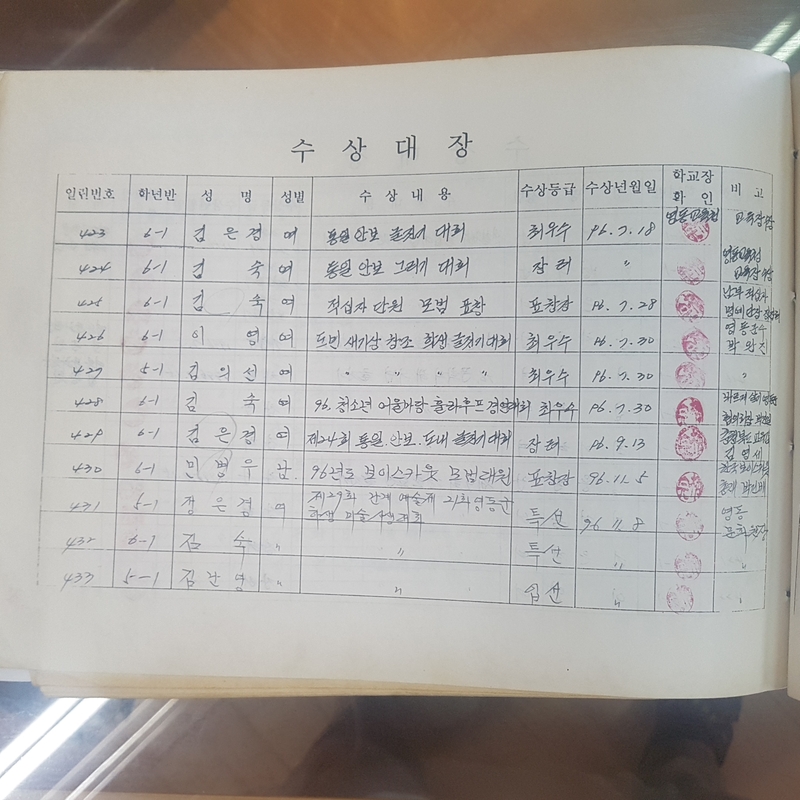 수 상 대 장
일련번호 학년반 성 명 성별 수 상 내 용 수상등급 수상년월일 학교장 확 인 비 고
423 6-1 김은경 여 통일 안보 글짓기 대회 최우수 96.7.18 영동교육청 교육장
424 6-1 김 숙 여 통일 안보 그리기 대회 장려 〃 영동교육청 교육장
425 6-1 김 숙 여 적십자 단원 모범 표창 표창장 96.7.28
426 6-1 이 영 여 도민 새기상 창조 학생 글짓기 대회 최우수 96.7.30 영동군수
427 5-1 김의선 여 〃 〃 〃 〃 최우수 96.7.30 〃
428 6-1 김 숙 여 96. 청소년 어울마당 훌라후프 경연대회 최우수 96.7.30
429 6-1 김은경 여 제24회 통일 안보 도내 글짓기 대회 장려 96.9.13
430 6-1 민병우 남 96년도 보이스카웃 모범대원 표창장 96.11.5
431 5-1 정은겸 여 제29회 난계 예술제 21회 영동군 학생 미술 대회 특선 96 11 8 영동 문화원장
432 6-1 김 숙 〃 〃 특선 〃 〃
433 5-1 김난영 〃 〃 입선 〃 〃